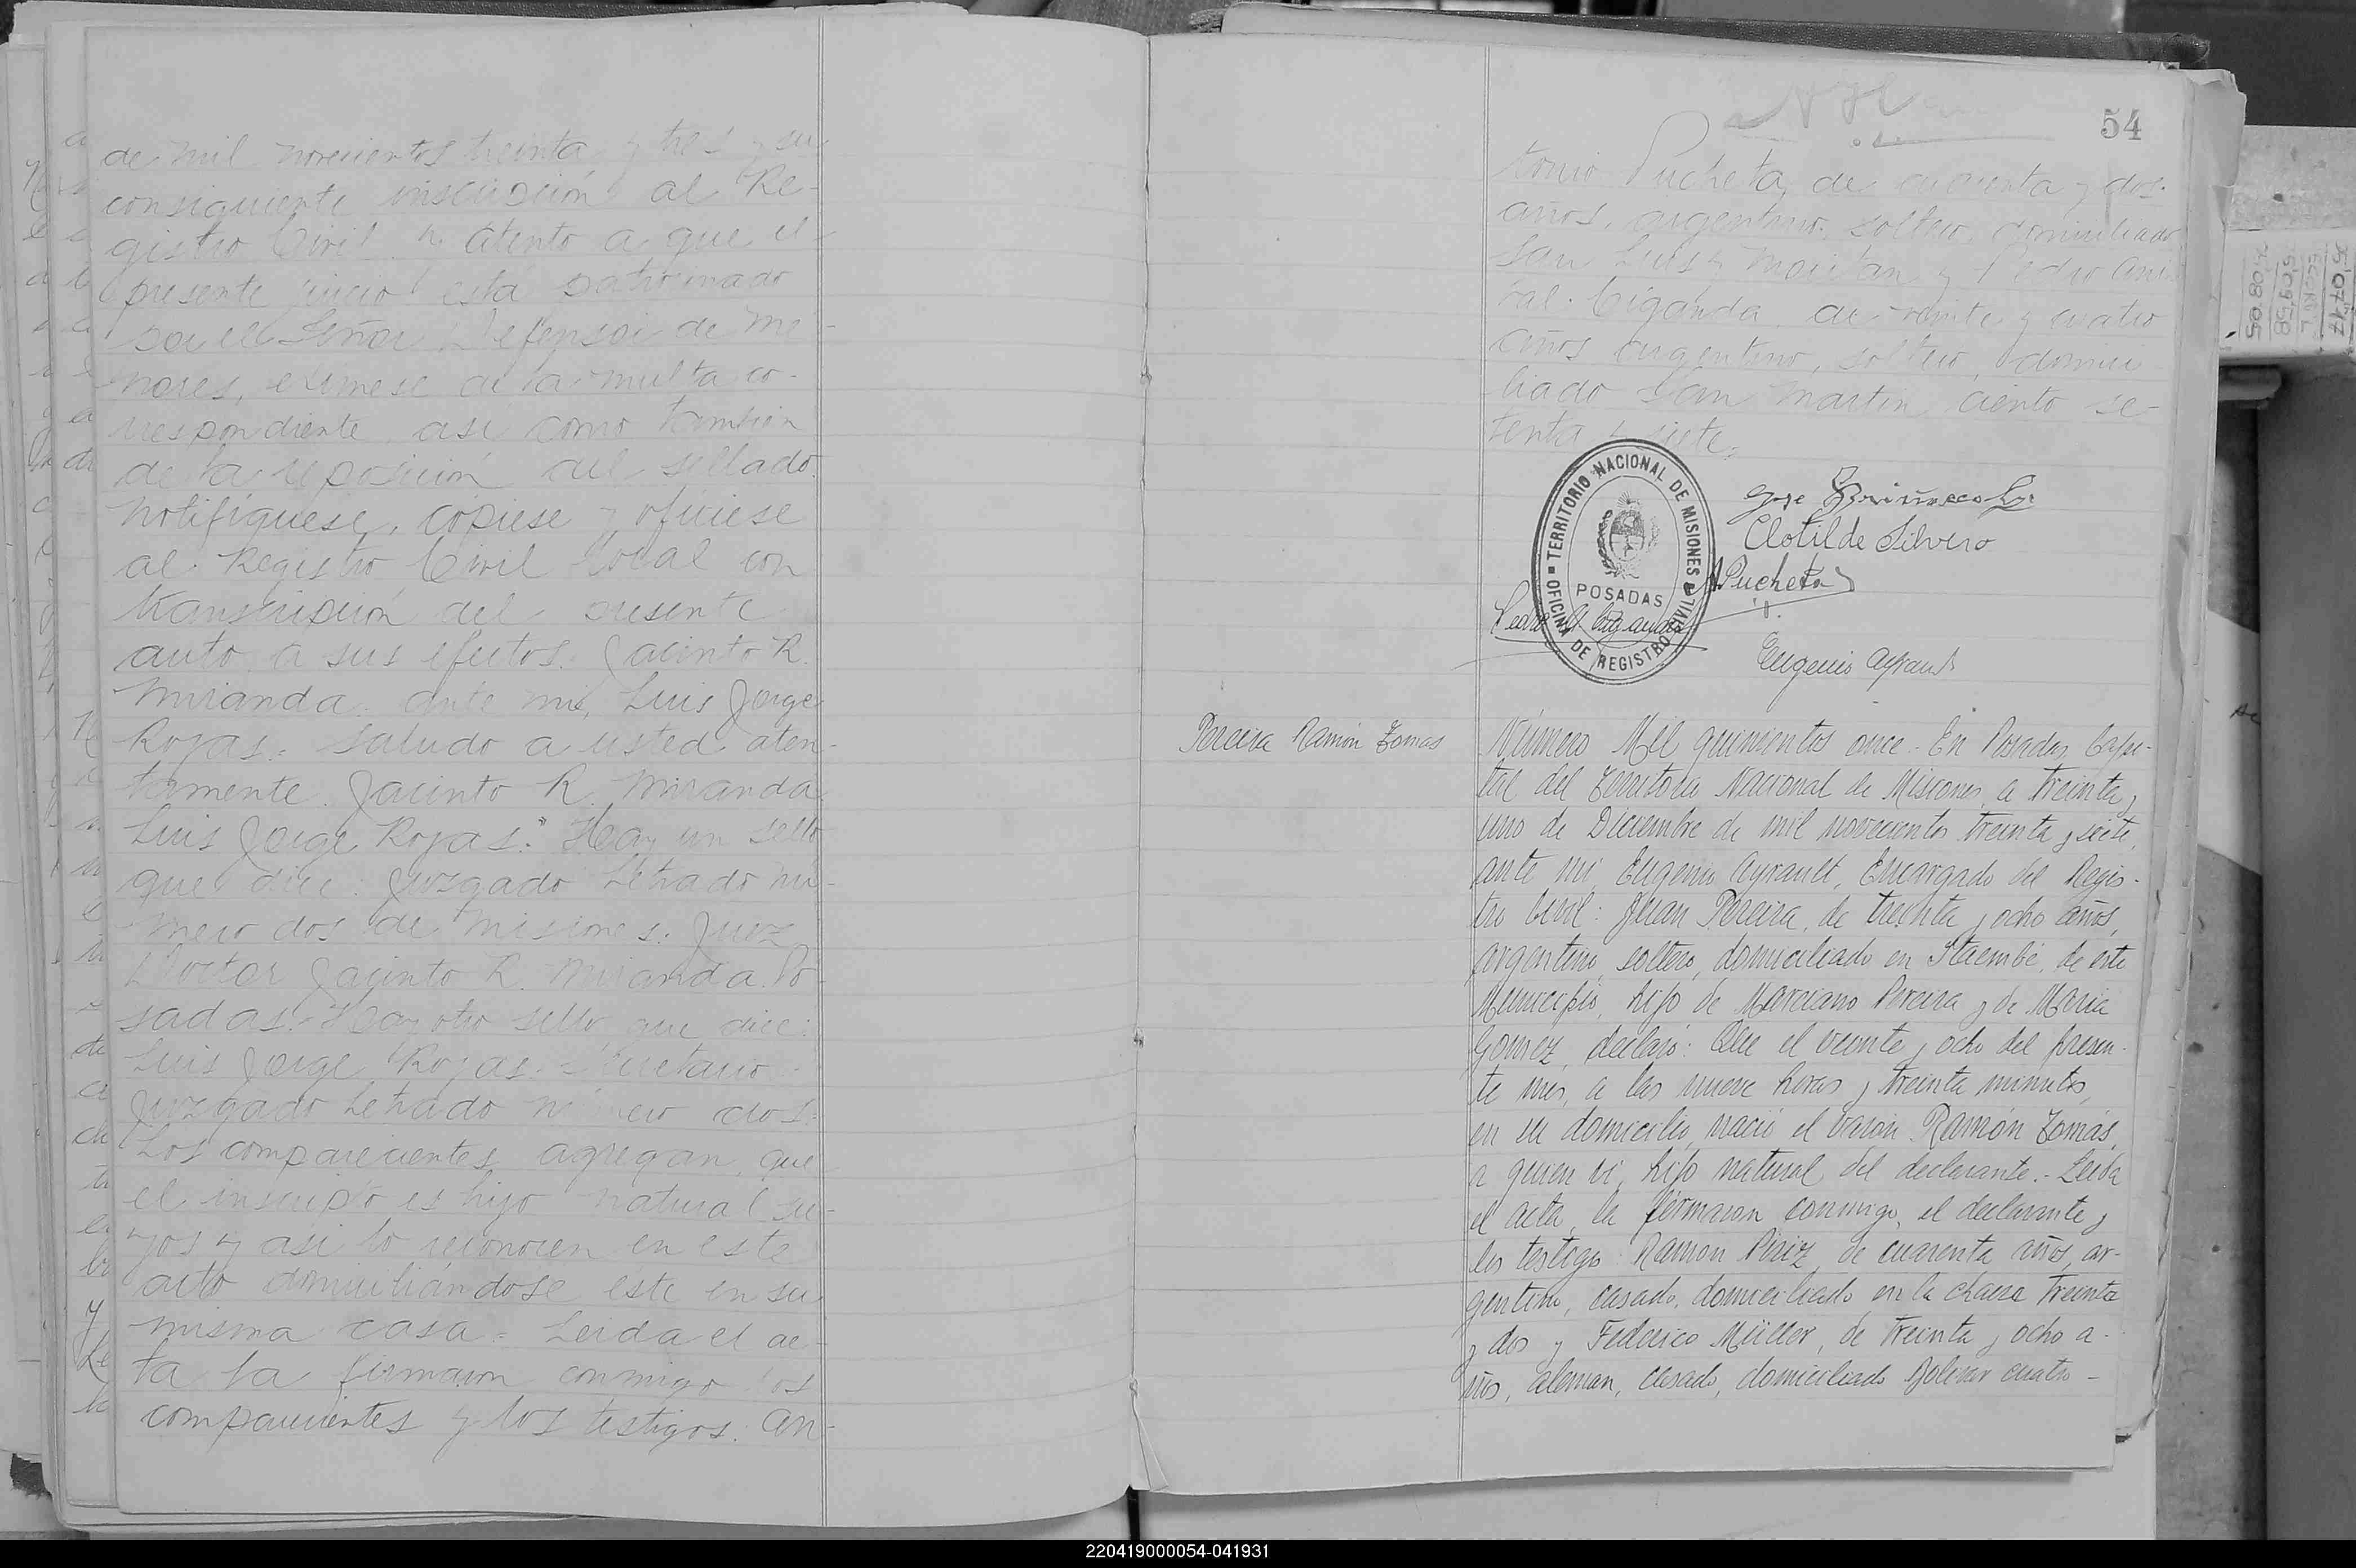 de mil novecientos treinta y tres y su
consiguiente inscripción al Re-
gistro Civil y atento a que el
presente juicio está patrocinado
por el Señor Defensor de Me-
nores, exímese de la multa co-
rrespondiente, asi como tambien
de la reposición del sellado.
Notifíquese, cópiese y ofíciese
al Registro Civil local con
transcripción del presente
auto a sus efectos. Jacinto R.
Miranda. ante mi, Luis Jorge
Rojas. Saludo a usted aten-
tamente. Jacinto R. Miranda.
Luis Jorge Rojas." Hay un sello
que dice: Juzgado Letrado nú-
mero dos de Misiones. Juez
Doctor Jacinto R. Miranda. Po-
sadas. Hay otro sello que dice:
Luis Jorge Rojas. Secretario
Juzgado Letrado número dos.
Los comparecientes agregan, que
el inscripto es hijo natural su-
yos y asi lo reconocen en este
acto domiciliándose este en su
misma casa. Leida el ac-
ta la firmaron conmigo los
comparecientes y los testigos: An-
54
tonio Pucheta, de cuarenta y dos
años, argentino, soltero, domiciliado
San Luis y y Pedro Aní-
bal Ciganda de veinte y cuatro
años argentino, soltero, domici-
liado San Martin ciento se-
tenta y siete.
TERRITORIO NACIONAL DE MISIONES
POSADAS
OFICINA DE REGISTRO CIVIL
Jose
Clotilde Silvero
A Pucheta
Pedro A Ciganda
Eugenio Ayrault
Pereira Ramón Tomas
Número Mil quinientos once. En Posadas, Capi-
tal del Territorio Nacional de Misiones, a treinta y
uno de Diciembre de mil novecientos treinta y siete,
ante mi Eugenio Ayrault, Encargado del Regis-
tro Civil: Juan Pereira, de treinta y ocho años,
argentino, soltero, domiciliado en Itaembé, de este
Municipio, hijo de Marciano Pereira y de Maria
Gomez, declaró: Que el veinte y ocho del presen-
te mes, a las nueve horas y treinta minutos,
en su domicilio, nació el varón Ramón Tomás,
a quien vi, hijo natural del declarante.- Leida
el acta, la firmaron conmigo, el declarante y
los testigos Ramon Piriz, de cuarenta años, ar-
gentino, casado, domiciliado en la chacra treinta
y dos y Federico Müller, de treinta y ocho a-
ños, aleman, casado, domiciliado Bolivar cuatro-
220419000054-041931